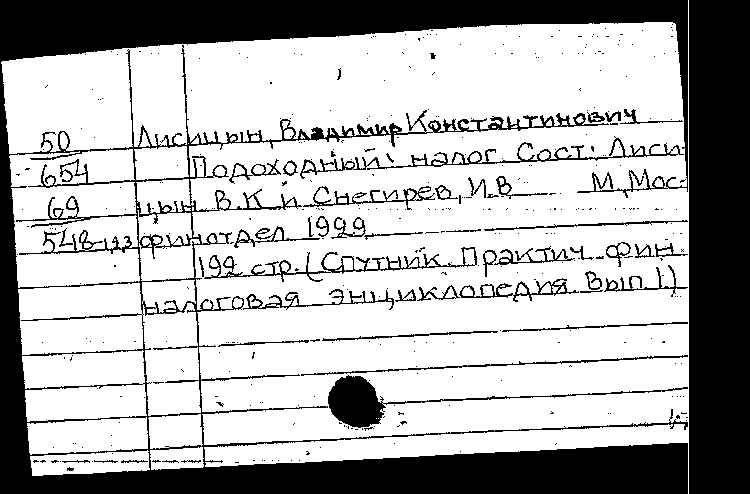 50 Лисицын, Владимир Константинович
654 Подоходный налог. Сост: Лиси-
69 цын В.К и Снегирев, И.В М, Мос-
548-123 финотдел 1929
192 стр. (Спутник. Практич. фин.
налоговая энциклопедия. Вып 1.)